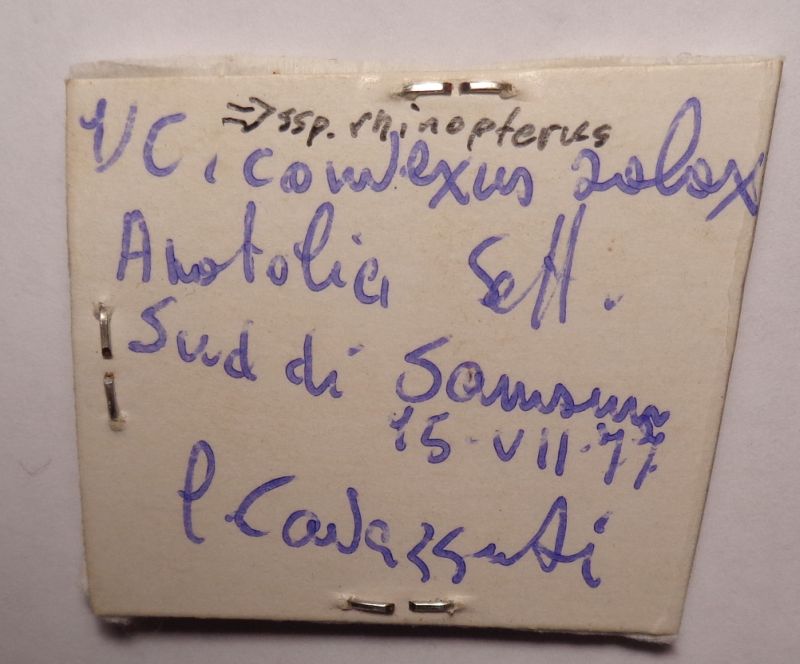 ⇒ssp. rhinopterus
C. convexus
Anatolia Sett.
Sud di Samsun
15-VII-77
P. Cavazzuti